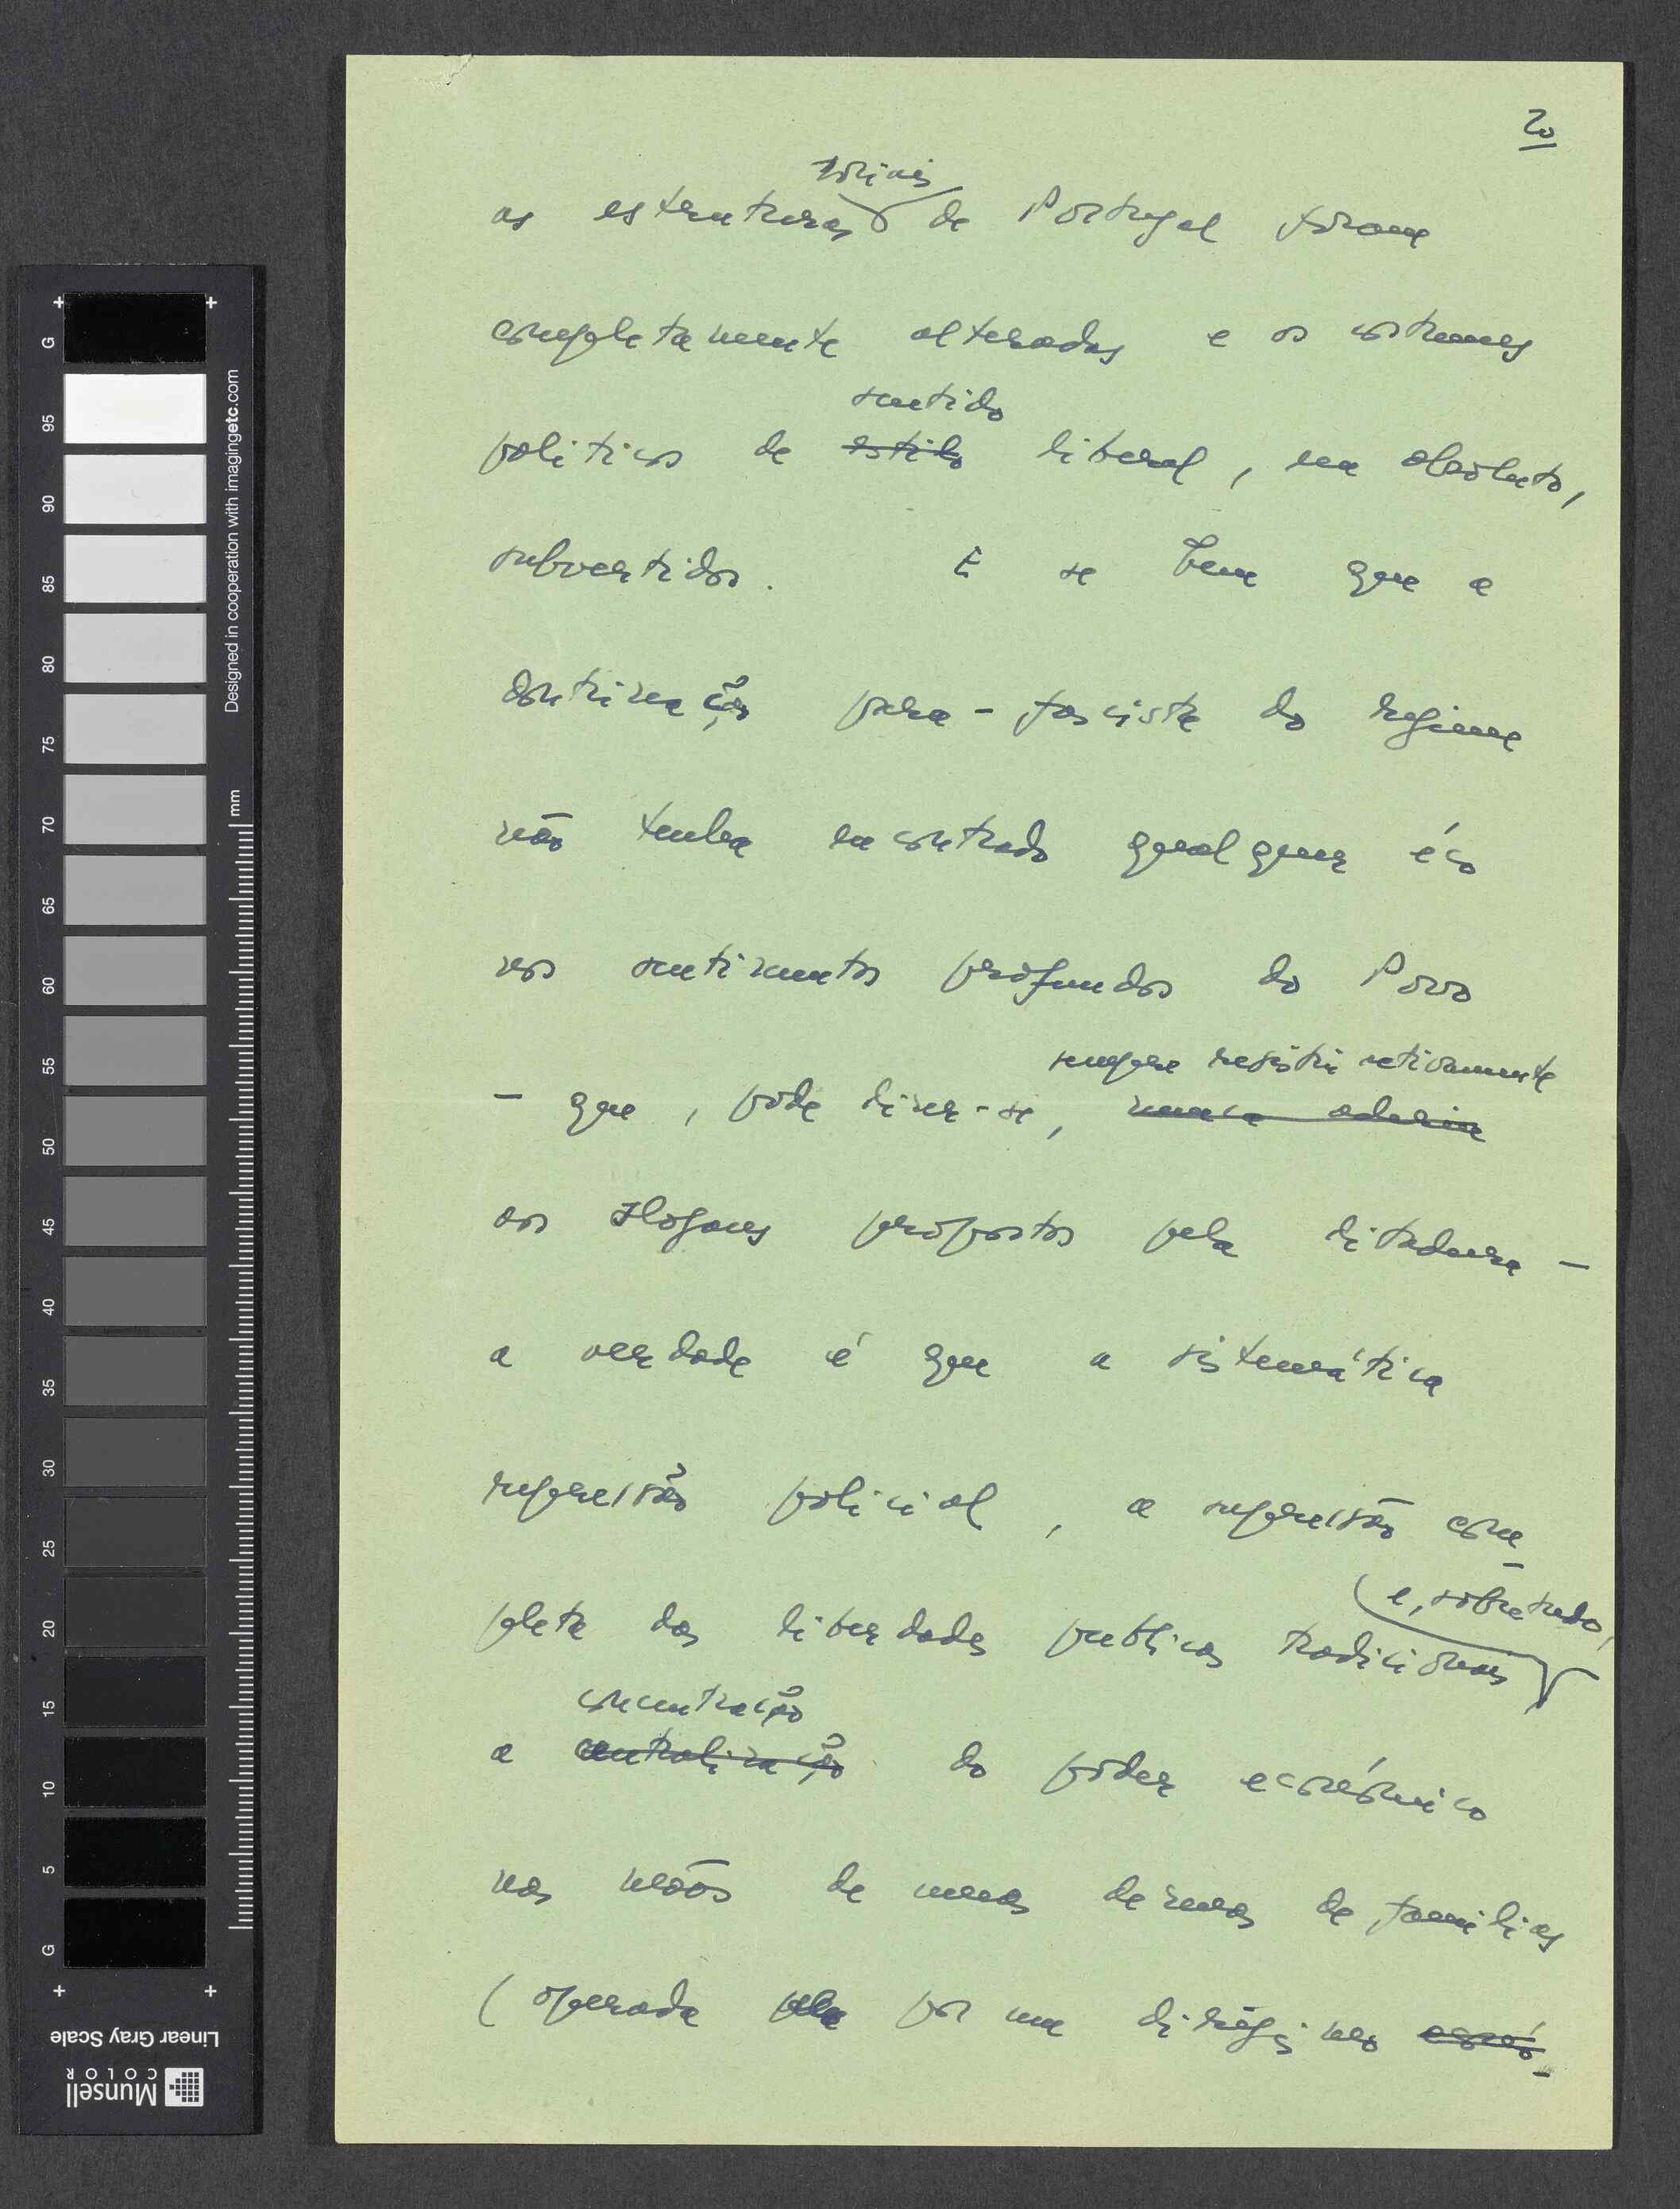 20
sociais
as estruturas de Portugal foram
completamente alteradas e os costumes
sentido
politicos de estilo liberal, em absoluto,
subvertidos. E se bem que a
doutrinação para-fascista do regime
não tenha encontrado qualquer éco
nos sentimentos profundos do Povo
sempre resistiu activamente
- que, pode dizer-se, nunca aderiu
aos slogans propostos pela ditadura -
a verdade é que a sistemática
repressão policial, a supressão com-
e, sobretudo,
pleta das liberdades publicas tradicionais
concentração
a centralização do poder económico
nas mãos de umas dezenas de familias
(operada pela por um dirigismo econó-
G 95 90 85 80 75 70 65 60 55 50 45 40 35 30 25 20 15 10 5 G
mm
Designed in cooperation with imagingetc.com
Linear Gray Scale
Munsell
COLOR